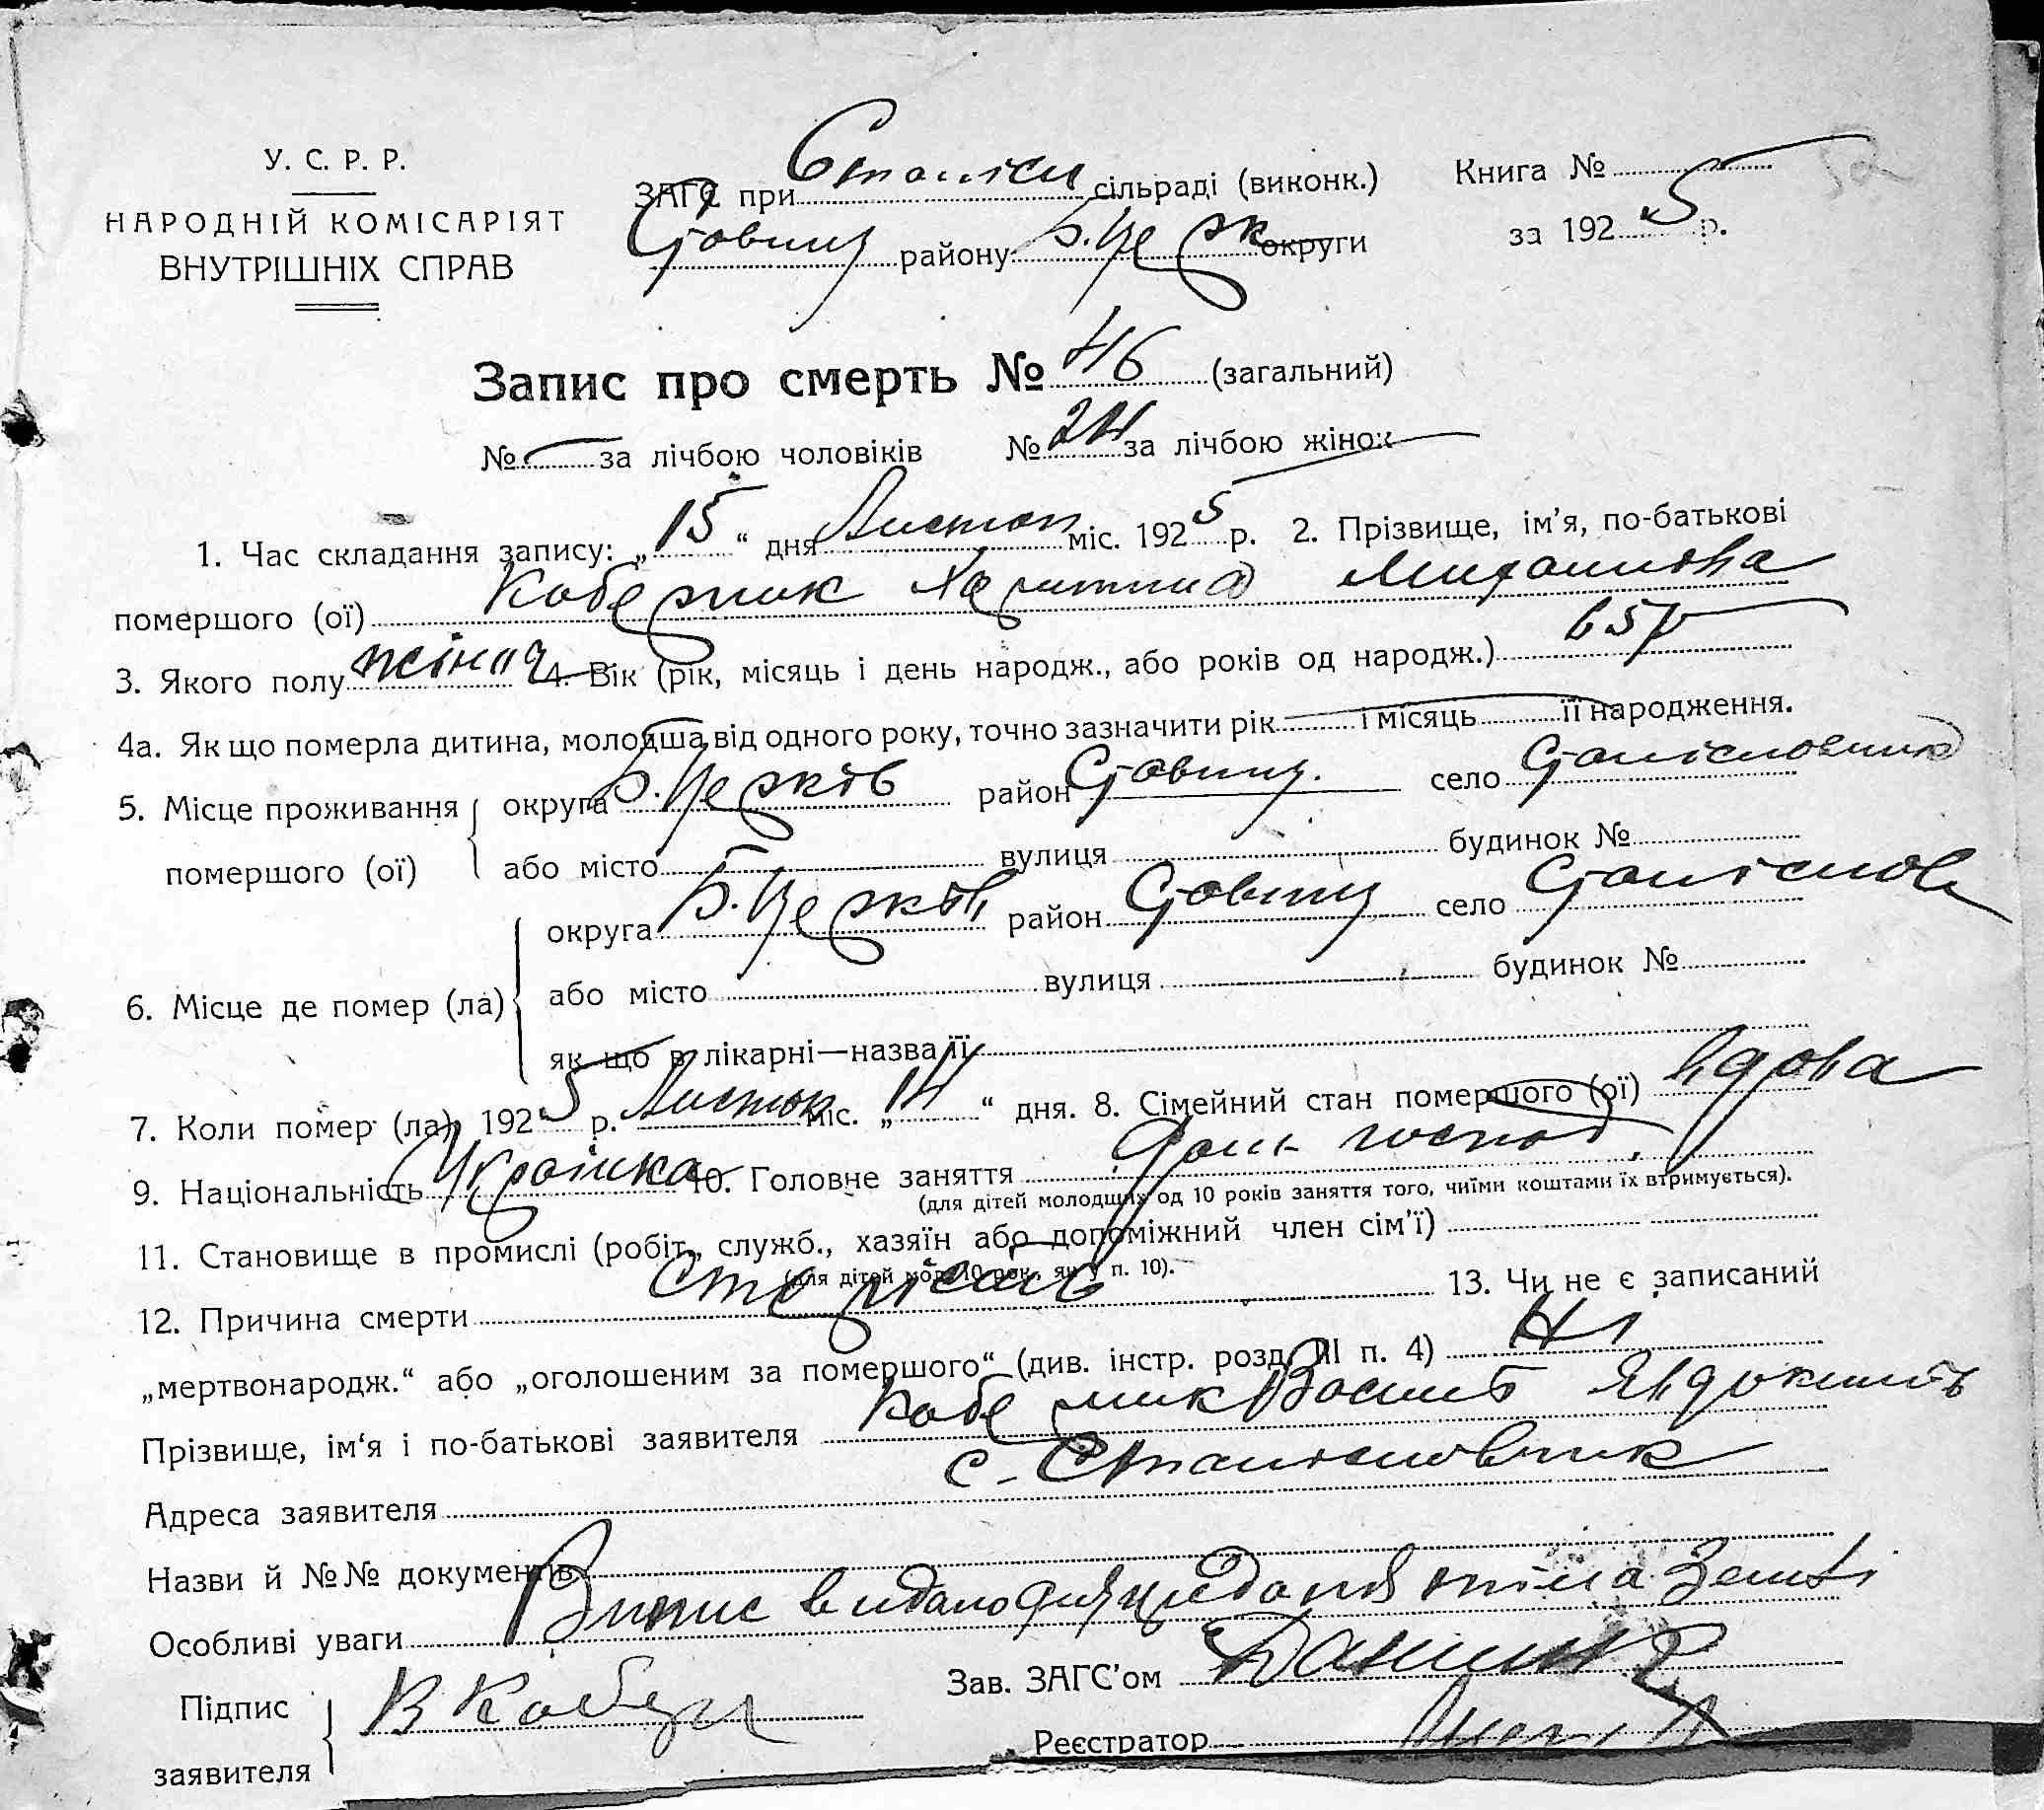 52
У. С. Р. Р.
НАРОДНІЙ КОМІСАРІЯТ
ВНУТРІШНІХ СПРАВ
ЗАГС при Станісл сільраді (виконк.)
Ставищ району Б.Церк округи
Книга №
за 1925 р.
Запис про смерть № 46 (загальний)
№ — за лічбою чоловіків № 24 за лічбою жінок
1. Час складання запису: „15“ дня Листоп міс. 1925 р. 2. Прізвище, ім’я, по-батькові
помершого (ої) Каберник Харитина Михайлова
3. Якого полу жіноч 4. Вік (рік, місяць і день народж., або років од народж.) 65р
4а. Як що померла дитина, молодша від одного року, точно зазначити рік — і місяць її народження.
5. Місце проживання помершого (ої) округа Б.Церків район Ставищ. село Станіславчик
або місто вулиця будинок №
6. Місце де помер (ла) округа Б.Церків район Ставищ село Станіслав
або місто вулиця будинок №
як що в лікарні—назва її
7. Коли помер (ла) 1925 р. Листоп міс. „14“ дня. 8. Сімейний стан помершого (ої) вдова
9. Національність Українка 10. Головне заняття Дом. господ.
(для дітей молодших од 10 років заняття того, чиїми коштами їх втримується).
11. Становище в промислі (робіт., служб., хазяїн або допоміжний член сім’ї)
(для дітей мол. 10 рок. як у п. 10).
12. Причина смерти Старість 13. Чи не є записаний
„мертвонародж.“ або „оголошеним за помершого“ (див. інстр. розд. III п. 4) Ні
Прізвище, ім‘я і по-батькові заявителя Каберник Василь Явдокимів
Адреса заявителя с. Станіславчик
Назви й №№ документів
Особливі уваги Випис видано для придания тіла землі
Підпис заявителя В Кабер
Зав. ЗАГС’ом
Реєстратор